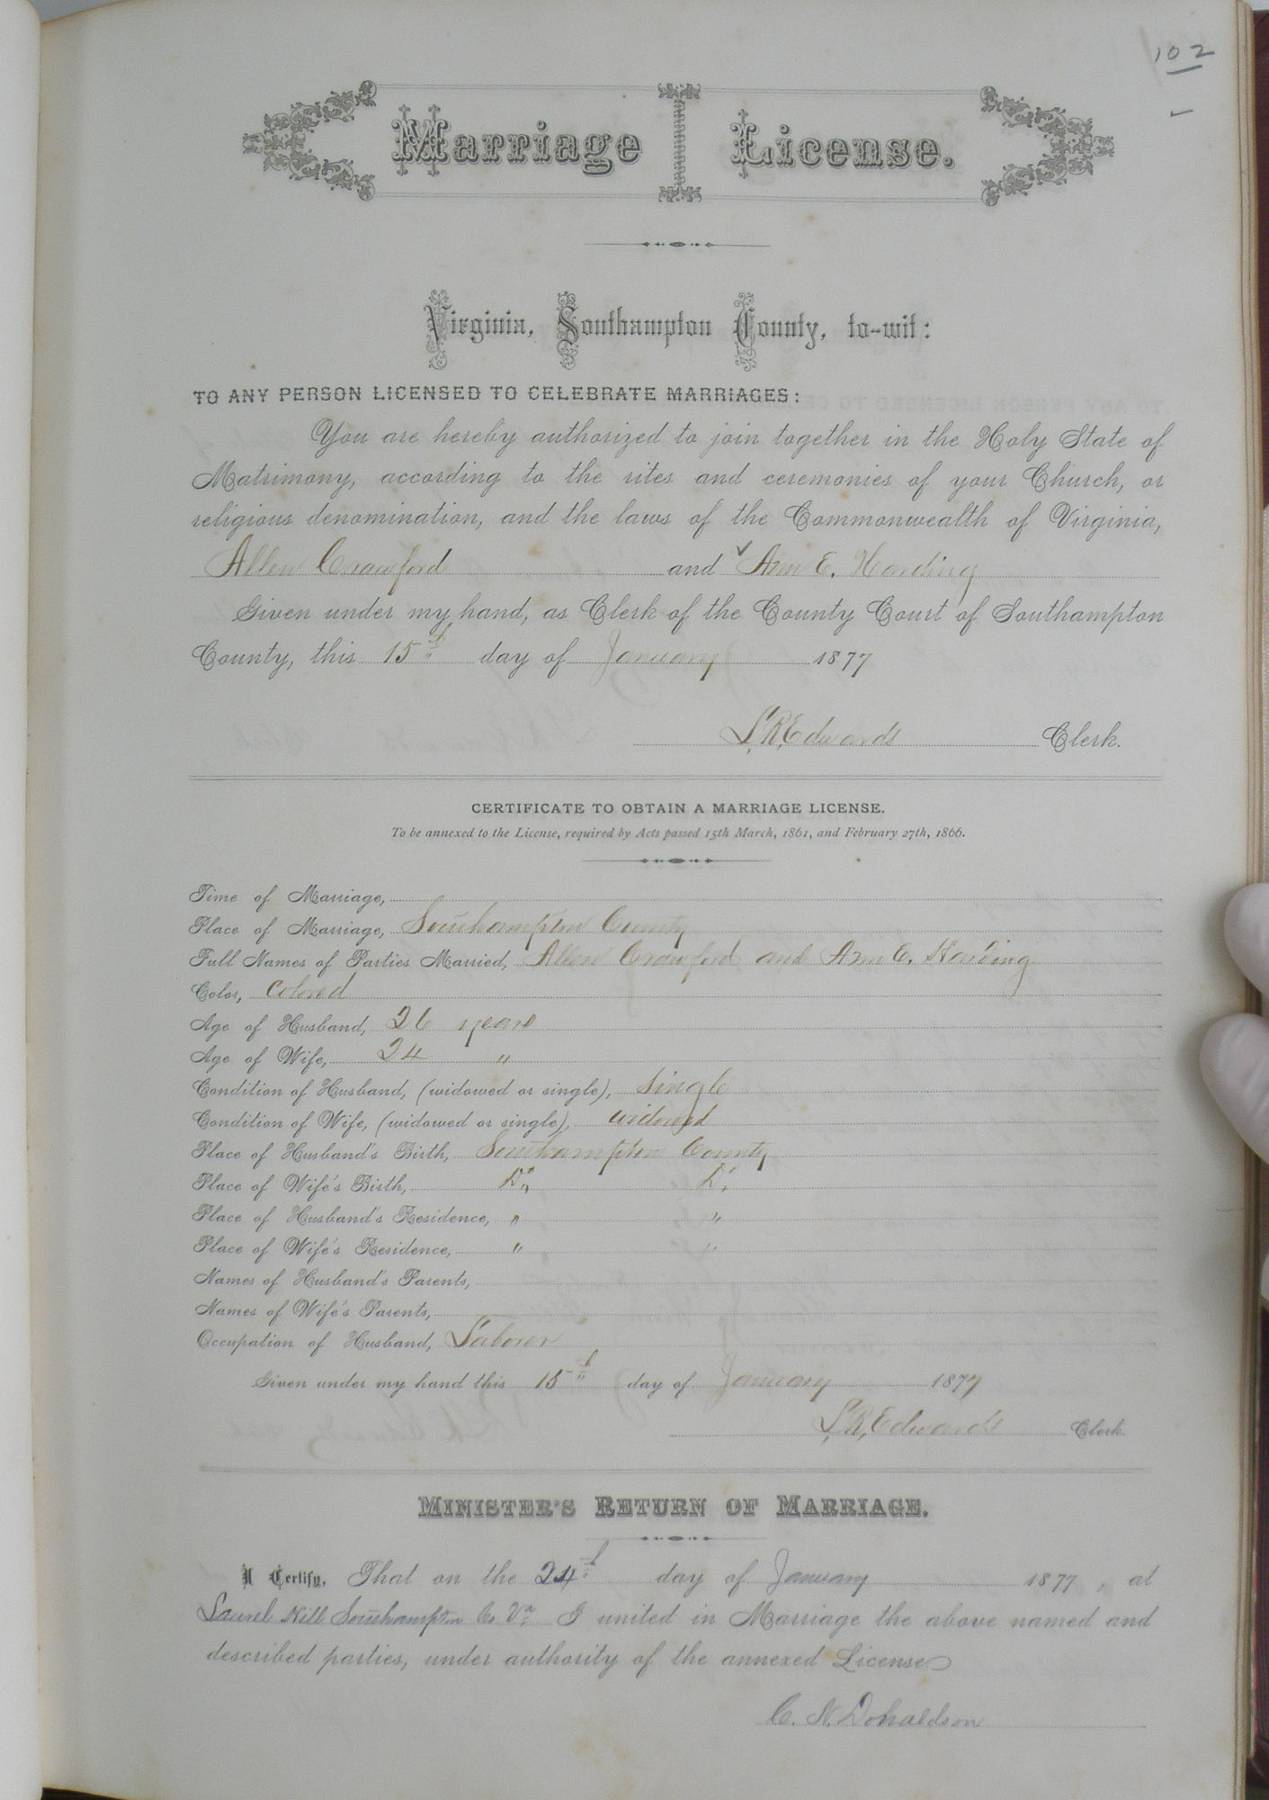 102
Marriage License.
Virginia, Southampton County, to-wit:
TO ANY PERSON LICENSED TO CELEBRATE MARRIAGES:
You are hereby authorized to join together in the Holy State of
Matrimony, according to the rites and ceremonies of your Church, or
religious denomination, and the laws of the Commonwealth of Virginia,
Allen Crawford and Ann E. Harding
Given under my hand, as Clerk of the County Court of Southampton
County, this 15th day of January 1877
L. R. Edwards Clerk.
CERTIFICATE TO OBTAIN A MARRIAGE LICENSE.
To be annexed to the License, required by Acts passed 15th March, 1861, and February 27th, 1866.
Time of Marriage,
Place of Marriage, Southampton County
Full Names of Parties Married, Allen Crawford and Ann E. Harding
Color, Colored
Age of Husband, 26 years
Age of Wife, 24 "
Condition of Husband, (widowed or single), Single
Condition of Wife, (widowed or single), widowed
Place of Husband's Birth, Southampton County
Place of Wife's Birth, Do. Do.
Place of Husband's Residence, " "
Place of Wife's Residence, " "
Names of Husband's Parents,
Names of Wife's Parents,
Occupation of Husband, Laborer
Given under my hand this 15th day of January 1877
L. R. Edwards Clerk.
MINISTER'S RETURN OF MARRIAGE.
I Certify, That on the 24th day of January 1877, at
Laurel Hill Southampton Co Va I united in Marriage the above named and
described parties, under authority of the annexed License
C. N. Donaldson